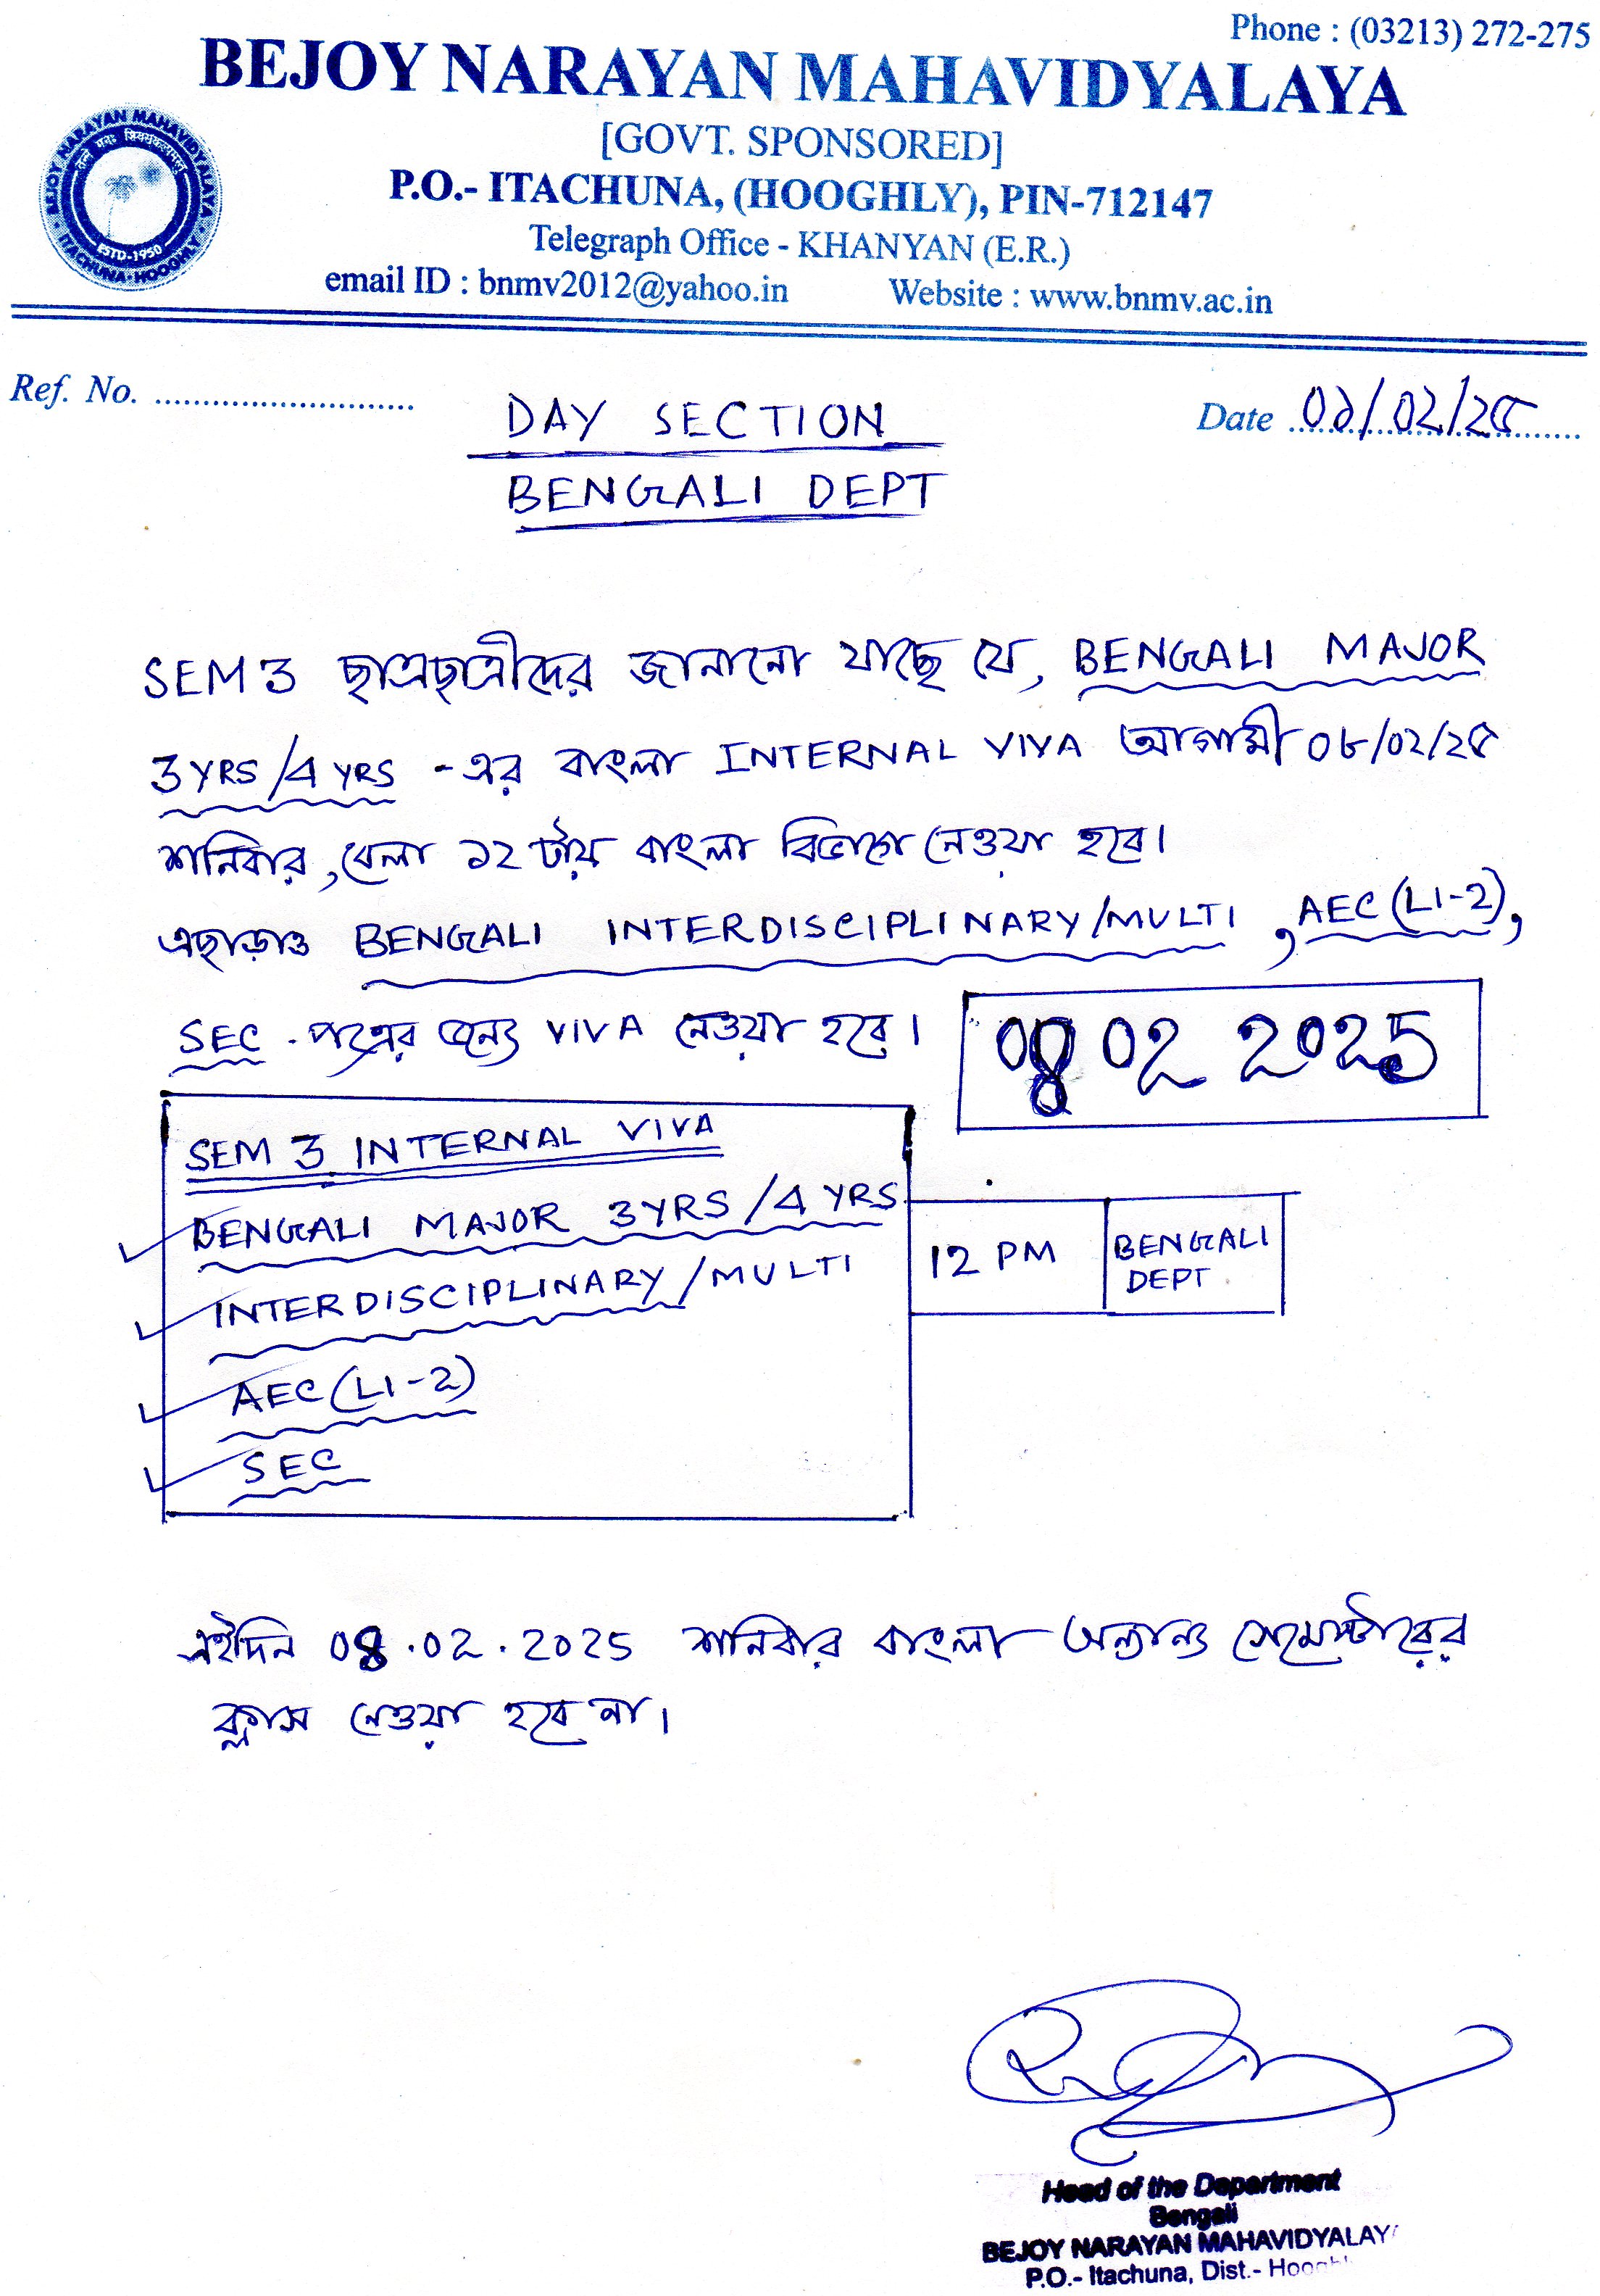 Phone : (03213) 272-275
BEJOY NARAYAN MAHAVIDYALAYA
[GOVT. SPONSORED]
P.O.- ITACHUNA, (HOOGHLY), PIN-712147
Telegraph Office - KHANYAN (E.R.)
email ID : bnmv2012@yahoo.in Website : www.bnmv.ac.in
BEJOY NARAYAN MAHAVIDYALAYA
ESTD-1950
ITACHUNA-HOOGHLY
Ref. No. ........................... Date /02/২৫
DAY SECTION
BENGALI DEPT
SEM 3 ছাত্রছাত্রীদের জানানো যাচ্ছে যে, BENGALI MAJOR
3 YRS/4 YRS -এর বাংলা INTERNAL VIVA আগামী ০৮/০২/২৫
শনিবার, বেলা ১২ টায় বাংলা বিভাগে নেওয়া হবে।
এছাড়াও BENGALI INTERDISCIPLINARY/MULTI, AEC (L1-2),
SEC - পত্রের জন্যে VIVA নেওয়া হবে।
08 02 2025
SEM 3 INTERNAL VIVA
BENGALI MAJOR 3YRS/4 YRS
12 PM
BENGALI
DEPT
INTERDISCIPLINARY/MULTI
AEC (L1-2)
SEC
এইদিন 08.02.2025 শনিবার বাংলা অন্যান্য সেমেস্টারের
ক্লাস নেওয়া হবে না।
Head of the Department
Bengali
BEJOY NARAYAN MAHAVIDYALAY
P.O.- Itachuna, Dist.- Hoogh